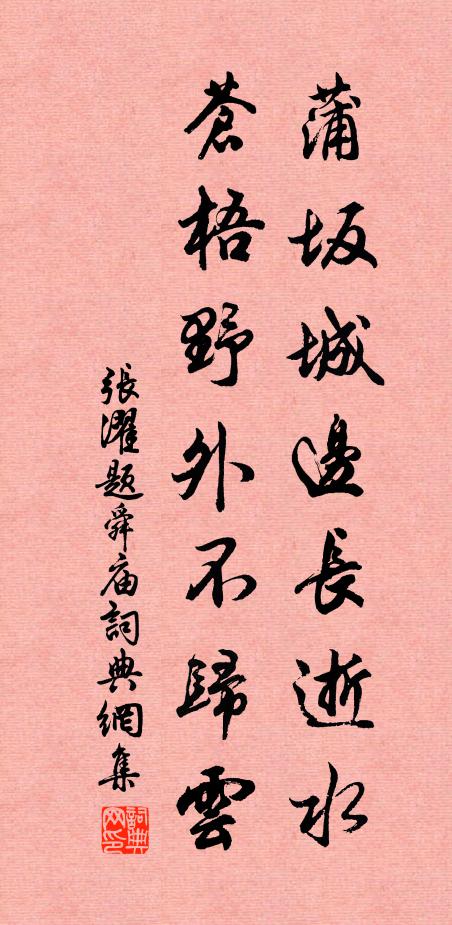 蒲坂城邊長逝水
蒼梧野外不歸雲
張濯題舜庙詞典網集
詞典網印